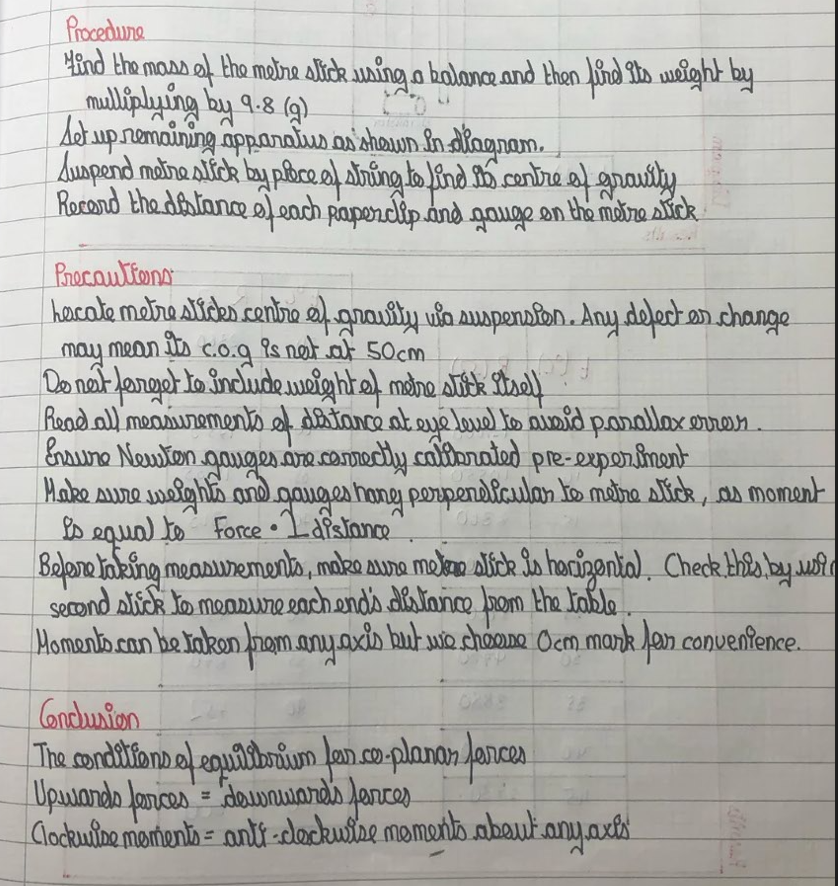 Procedure
Find the mass of the metre stick using a balance and then find its weight by
multiplying by 9.8 (g)
Set up remaining apparatus as shown in diagram.
Suspend metre stick by piece of string to find its centre of gravity
Record the distance of each paperclip and gauge on the metre stick
Precautions
Locate metre sticks centre of gravity via suspension. Any defect or change
may mean its c.o.g is not at 50cm
Do not forget to include weight of metre stick itself
Read all measurements of distance at eye level to avoid parallax error.
Ensure Newton gauges are correctly calibrated pre-experiment
Make sure weights and gauges hang perpendicular to metre stick, as moment
is equal to Force • ⊥ distance.
Before taking measurements, make sure metre stick is horizontal. Check this by
second stick to measure each end's distance from the table.
Moments can be taken from any axis but we choose 0cm mark for convenience.
Conclusion
The conditions of equilibrium for co-planar forces
Upwards forces = downwards forces
Clockwise moments = anti-clockwise moments about any axis